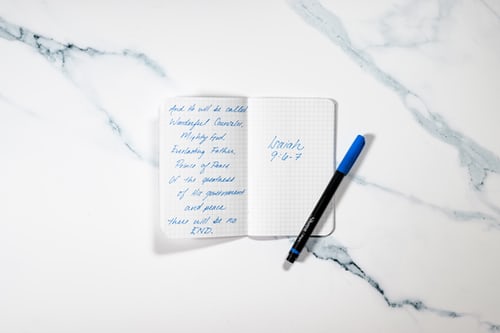 And He will be called
Wonderful Counselor,
Mighty God,
Everlasting Father,
Prince of Peace
Of the greatness
of His government
and peace
there will be no
END.
Isaiah
9:6-7